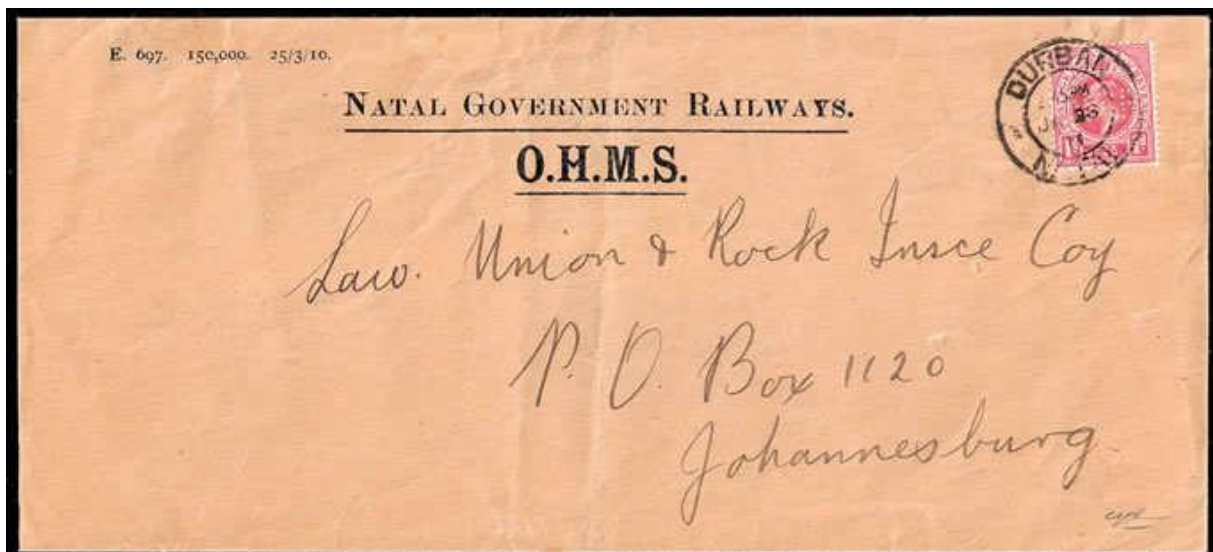 E. 697. 150,000. 25/3/10.
NATAL GOVERNMENT RAILWAYS.
O.H.M.S.
DURBAN
Law. Union & Rock Insce Coy
P. O. Box 1120
Johannesburg